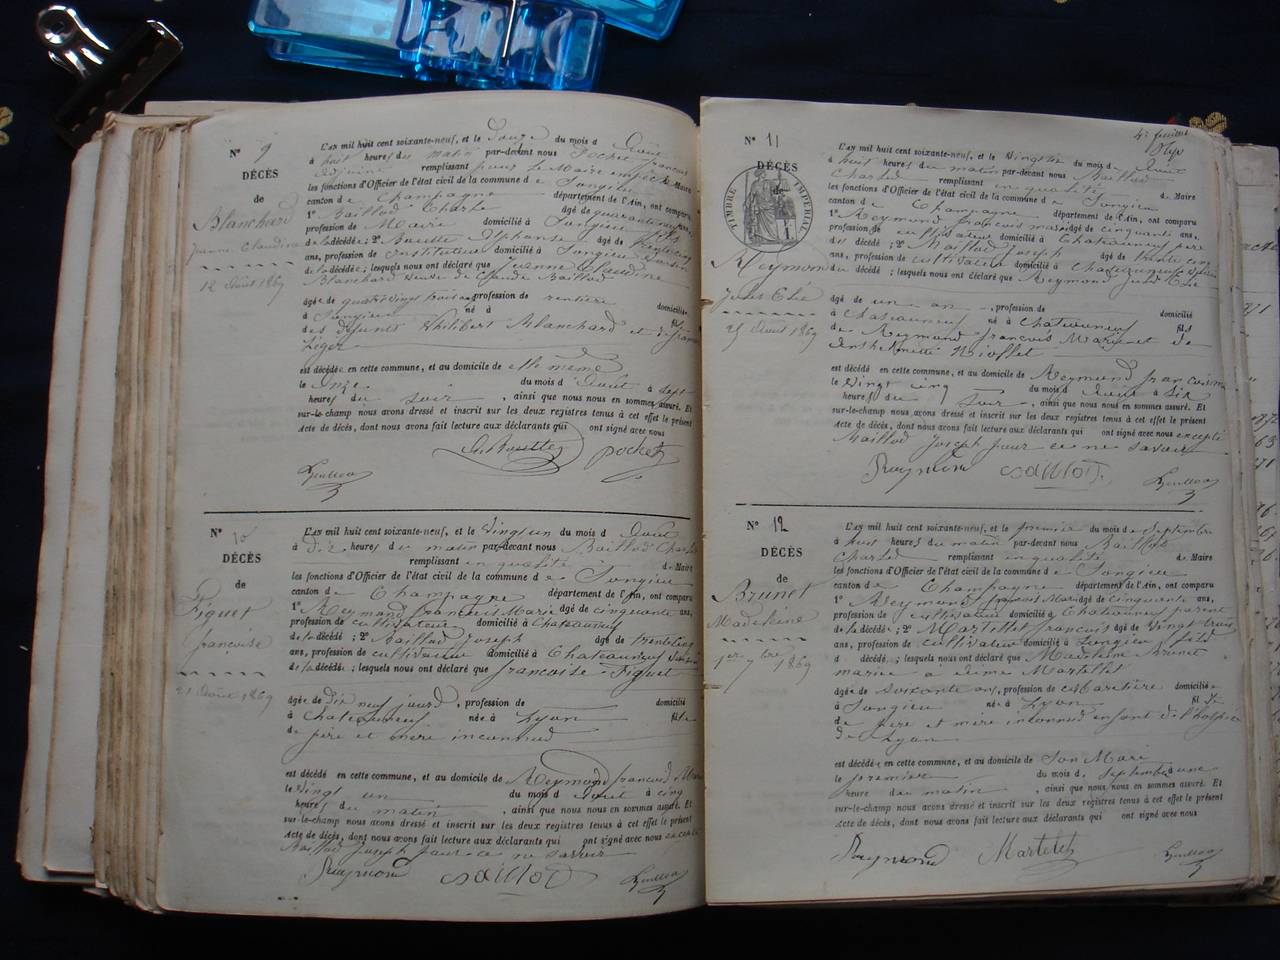 N° 9
DÉCÈS
de
Blanchard
Jeanne Claudine
12 Août 1869
L'an mil huit cent soixante-neuf, et le Douze du mois d Août
à huit heures du matin par-devant nous Pochet françois
Adjoint remplissant pour le Maire empêché Maire
les fonctions d'Officier de l'état civil de la commune de Songieu
canton de Champagne département de l'Ain, ont comparu
1° Baillod Charles âgé de quarante
profession de Maire domicilié à Songieu
de la décédée ; 2° Alphonse âgé de vingt cinq
ans, profession de instituteur domicilié à Songieu voisin
de la décédée ; lesquels nous ont déclaré que Jeanne Claudine
Blanchard veuve de Claude Baillod
âgée de quatre vingt trois ans profession de rentière domiciliée
à Songieu né à fille
des défunts Philibert Blanchard et de
Léger
est décédée en cette commune, et au domicile de elle même
le onze du mois d Août à sept
heures du soir , ainsi que nous nous en sommes assuré. Et
sur-le-champ nous avons dressé et inscrit sur les deux registres tenus à cet effet le présent
acte de décès, dont nous avons fait lecture aux déclarants qui ont signé avec nous
pochet
N° 10
DÉCÈS
de
Figuet
françoise
21 Août 1869
L'an mil huit cent soixante-neuf, et le vingt un du mois d Août
à dix heures du matin par-devant nous Baillod Charles
remplissant en qualité de Maire
les fonctions d'Officier de l'état civil de la commune de Songieu
canton de Champagne département de l'Ain, ont comparu
1° Reymond françois Marie âgé de cinquante ans,
profession de cultivateur domicilié à Chateauneuf
de la décédée ; 2° Baillod Joseph âgé de trente cinq
ans, profession de cultivateur domicilié à Chateauneuf voisin
de la décédée ; lesquels nous ont déclaré que françoise Figuet
âgée de dix neuf jours , profession de domicilié
à Chateauneuf née à Lyon fille
de père et mère inconnus
est décédé en cette commune, et au domicile de Reymond françois Marie
le vingt un du mois d Août à cinq
heures du matin , ainsi que nous nous en sommes assuré. Et
sur-le-champ nous avons dressé et inscrit sur les deux registres tenus à cet effet le présent
acte de décès, dont nous avons fait lecture aux déclarants qui ont signé avec nous excepté
Baillod Joseph pour ce ne savoir
Reymond Baillod
4e feuillet
N° 11
DÉCÈS
de
TIMBRE IMPÉRIAL
Reymond
Jules Elie
25 Août 1869
L'an mil huit cent soixante-neuf, et le vingt six du mois d Août
à huit heures du matin par-devant nous Baillod
Charles remplissant en qualité de Maire
les fonctions d'Officier de l'état civil de la commune de Songieu
canton de Champagne département de l'Ain, ont comparu
1° Reymond françois Marie âgé de cinquante ans,
profession de cultivateur domicilié à Chateauneuf père
du décédé ; 2° Baillod Joseph âgé de trente cinq
ans, profession de cultivateur domicilié à Chateauneuf voisin
du décédé ; lesquels nous ont déclaré que Reymond Jules Elie
âgé de un an , profession de domicilié
à Chateauneuf né à Chateauneuf fils
de Reymond françois Marie et de
Niollet
est décédé en cette commune, et au domicile de Reymond françois
le vingt cinq du mois d Août à six
heures du soir , ainsi que nous nous en sommes assuré. Et
sur-le-champ nous avons dressé et inscrit sur les deux registres tenus à cet effet le présent
acte de décès, dont nous avons fait lecture aux déclarants qui ont signé avec nous excepté
Baillod Joseph pour ce ne savoir
Reymond Baillod
N° 12
DÉCÈS
de
Brunet
Madeleine
1er 7bre 1869
L'an mil huit cent soixante-neuf, et le premier du mois de septembre
à huit heures du matin par-devant nous Baillod
Charles remplissant en qualité de Maire
les fonctions d'Officier de l'état civil de la commune de Songieu
canton de Champagne département de l'Ain, ont comparu
1° Reymond françois Marie âgé de cinquante ans,
profession de cultivateur domicilié à Chateauneuf parent
de la décédée ; 2° Martellet françois âgé de vingt trois
ans, profession de cultivateur domicilié à Songieu fils
d décédé ; lesquels nous ont déclaré que Madeleine Brunet
mariée à Martellet
âgée de soixante ans, profession de domiciliée
à Songieu née à Lyon fille
de père et mère inconnus enfant de l'hospice
de Lyon
est décédée en cette commune, et au domicile de Son Mari
le premier du mois d septembre à une
heure du matin , ainsi que nous nous en sommes assuré. Et
sur-le-champ nous avons dressé et inscrit sur les deux registres tenus à cet effet le présent
acte de décès, dont nous avons fait lecture aux déclarants qui ont signé avec nous
Reymond